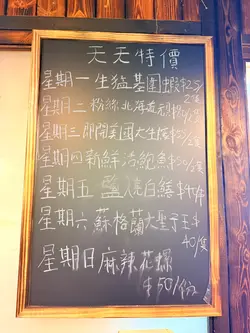 天天特價
星期一 生猛基圍蝦 $25/
2隻
星期二 粉絲北海道元貝
星期三 即開美國大生蠔 $25/隻
星期四 新鮮活鮑魚 /2隻
星期五 鹽 白鱔
星期六 蘇格蘭大聖子王 $
40/隻
星期日 麻辣花螺
$50/份